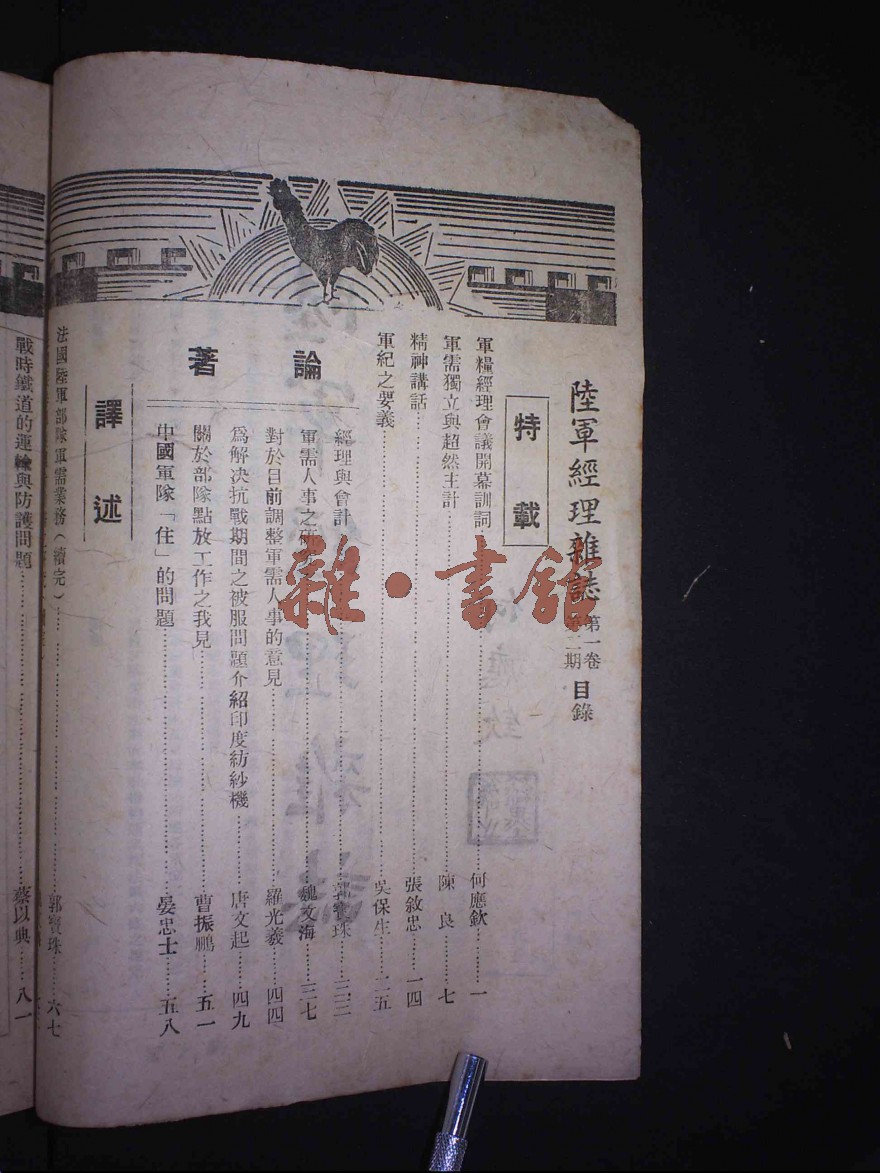 陸軍經理雜誌 第一卷 第二期 目錄
特載
軍糧經理會議開幕訓詞……何應欽……一
軍需獨立與超然主計……陳良……七
精神講話……張敘忠……一四
軍紀之要義……吳保生……二五
論著
經理與會計……郭寶珠……三二
軍需人事之研……魏文海……三七
對於目前調整軍需人事的意見……羅光羲……四四
爲解决抗戰期間之被服問題介紹印度紡紗機……唐文起……四九
關於部隊點放工作之我見……曹振鵬……五一
中國軍隊「住」的問題……晏忠士……五八
譯述
法國陸軍部隊軍需業務（續完）……郭寶珠……六七
戰時鐵道的運輸與防護問題……蔡以典……八一
雜·書館